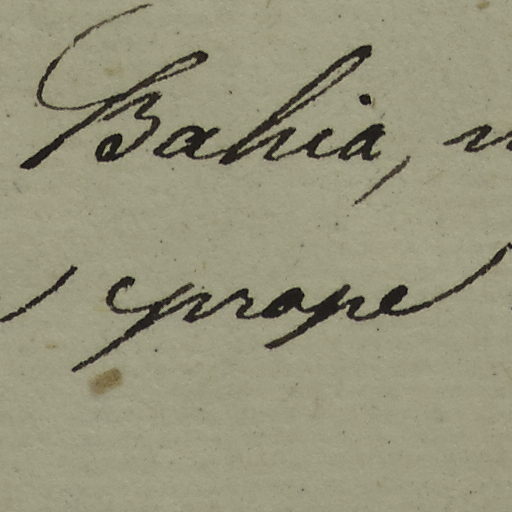 Bahia,
prope